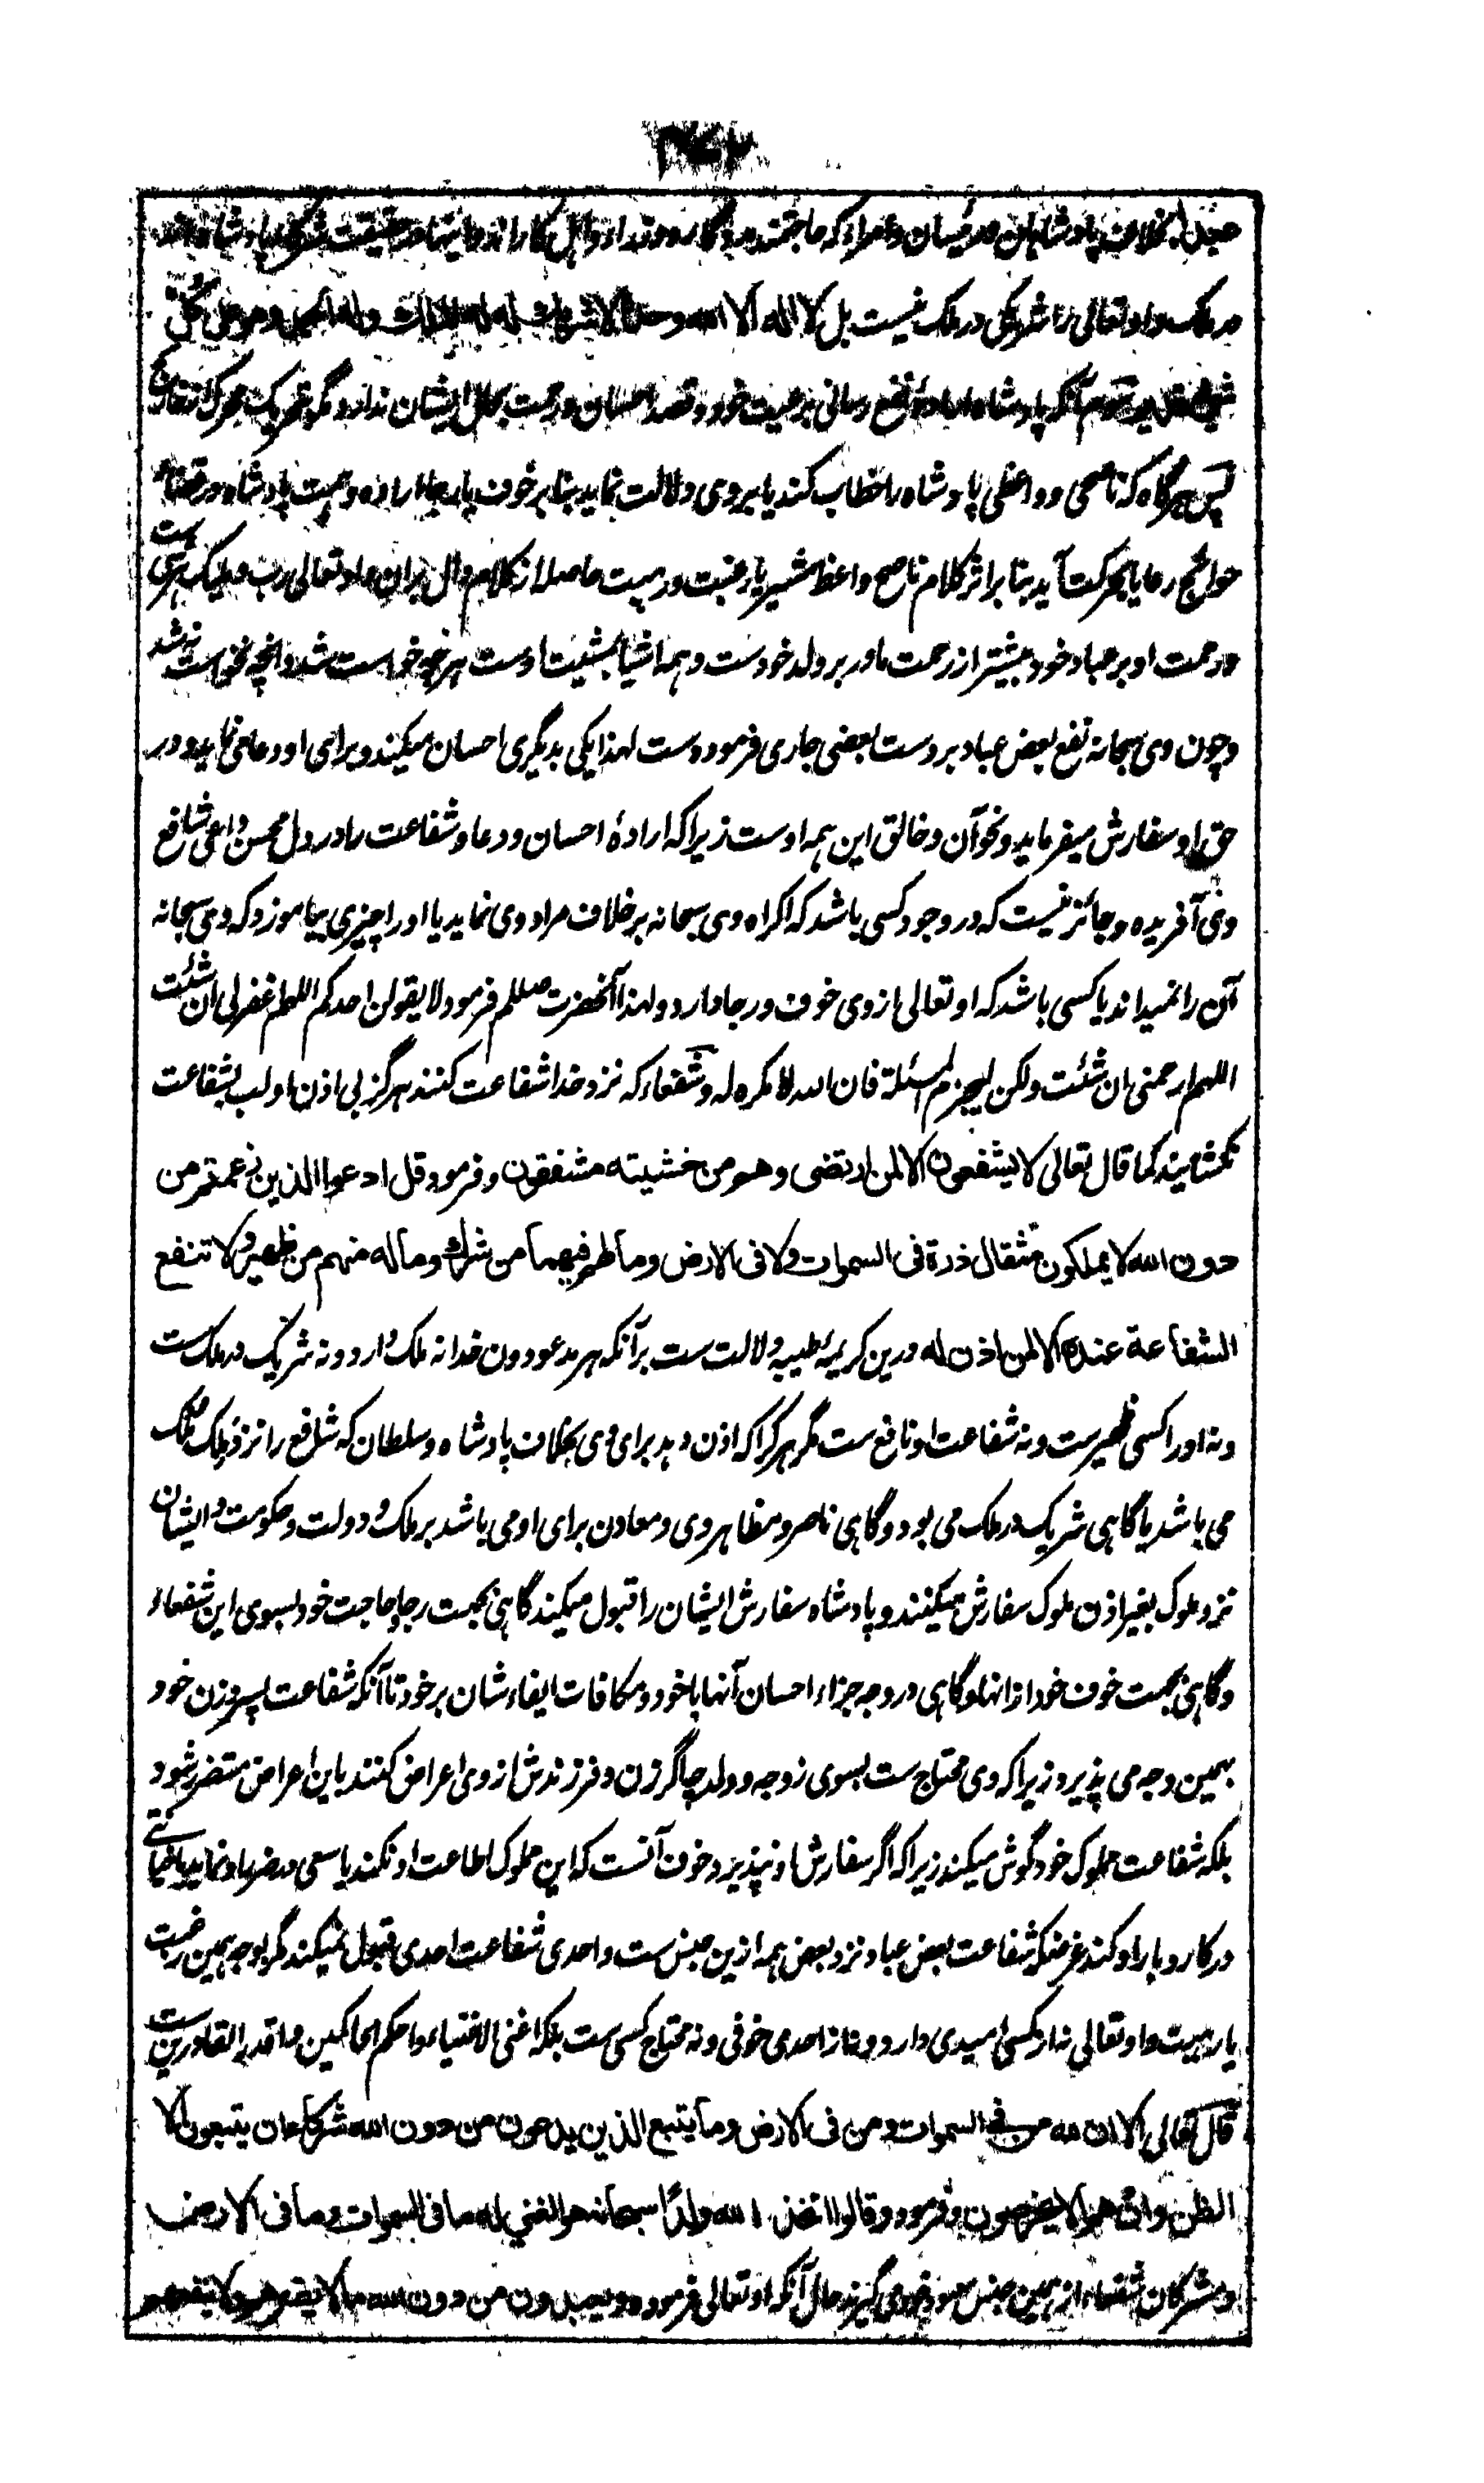 بخلاف پادشاهان و رئیسان و امراء که محتاجند بمددگار و مدد او و اهل کاراند و اینها در حقیقت شرکاء پادشاه اند
در ملک و او تعالی را شریکی در ملک نیست بل لا اله الا الله وحده لا شریك له له الملك وله الحمد وهو على كل
شیء قدیر سوم آنکه پادشاه اراده نفع رسانی بر رعیت خود و قصد احسان و رحمت بحال ایشان ندارد مگر بتحریک محرک از خارج
پس هرگاه که ناصحی و واعظی پادشاه را خطاب کند یا بر وی دلالت نماید بنابر خوف یا رجا اراده و همت پادشاه در قضاء
حوائج رعایا بحرکت آید بنا بر اثر کلام ناصح واعظ مشیر یا رغبت و رهبت حاصله از کلام دال بران و او تعالی رب و ملیک هر شی ست
و رحمت او بر عباد خود بیشتر از رحمت مادر بر ولد خودست و همه اشیا بمشیت اوست هر چه خواست شد و آنچه نخواست نشد
و چون وی سبحانه نفع بعض عباد بر دست بعضی جاری فرموده ست لهذا یکی بدیگری احسان میکند و برای او دعا می نماید و در
حق او سفارش میفرماید و نحو آن و خالق این همه اوست زیرا که ارادهٔ احسان و دعا و شفاعت را در دل محسن و داعی و شافع
وی آفریده و جائز نیست که در وجود کسی باشد که اکراه وی سبحانه بر خلاف مراد وی نماید یا او را چیزی بیاموزد که وی سبحانه
آن را نمیداند یا کسی باشد که او تعالی از وی خوف و رجا دارد و لهذا آنحضرت صللم فرمود لا یقولن احدکم اللهم اغفر لی ان شئت
اللهم ارحمنی ان شئت ولکن لیجزم المسئلة فان الله لا مکره له و شفعاء که نزد خدا شفاعت کنند هرگز بی اذن او لب بشفاعت
نکشایند کما قال تعالی لا يشفعون الا لمن ارتضى وهم من خشيته مشفقون و فرمود قل ادعوا الذين زعمتم من
دون الله لا يملكون مثقال ذرة فى السموات ولا فى الارض وما لهم فيهما من شرك وما له منهم من ظهير ولا تنفع
الشفاعة عنده الا لمن اذن له درین کریمهٔ طیبه دلالت ست بر آنکه هر مدعو دون خدا نه ملک دارد و نه شریک در ملک ست
و نه او را کسی ظهیرست و نه شفاعت او نافع ست مگر هر کرا که اذن دهد برای وی بخلاف پادشاه و سلطان که شافع را نزد او ملک
می باشد یا گاهی شریک در ملک می بود و گاهی ناصر و مظاهر وی و معاون برای او می باشد بر ملک و دولت و حکومت و ایشان
نزد ملوک بغیر اذن ملوک سفارش میکنند و پادشاه سفارش ایشان را قبول میکند گاهی بجهت رجا و حاجت خود بسوی این شفعاء
و گاهی بجهت خوف خود از آنها و گاهی در وجه جزاء احسان آنها با خود و مکافات ایفاء شان بر خود تا آنکه شفاعت پسر و زن خود
بهمین وجه می پذیرد زیرا که وی محتاج ست بسوی زوجه و ولد چه اگر زن و فرزندش از وی اعراض کنند باین اعراض متضرر شود
بلکه شفاعت مملوک خود گوش میکند زیرا که اگر سفارش او نپذیرد خوف آنست که این مملوک اطاعت او نکند یا سعی در ضرر او نماید یا خیانتی
در کار و بار او کند غرضکه شفاعت بعض عباد نزد بعض همه ازین جنس ست و احدی شفاعت احدی قبول نمیکند مگر بوجه همین رغبت
یا رهبت و او تعالی نه از کسی امیدی دارد و نه از احدی خوفی و نه محتاج کسی ست بلکه اغنی الاغنیاء و احکم الحاکمین و اقدر القادرین ست
قال تعالى الا ان لله من فى السموات ومن فى الارض وما يتبع الذين يدعون من دون الله شركاء ان يتبعون الا
الظن وان هم الا يخرصون و فرمود وقالوا اتخذ الله ولدا سبحانه هو الغني له ما فى السموات وما فى الارض
و مشرکان شفعاء از همین جنس معهود خود می گیرند حال آنکه او تعالی فرموده ويعبدون من دون الله ما لا يضرهم ولا ينفعهم